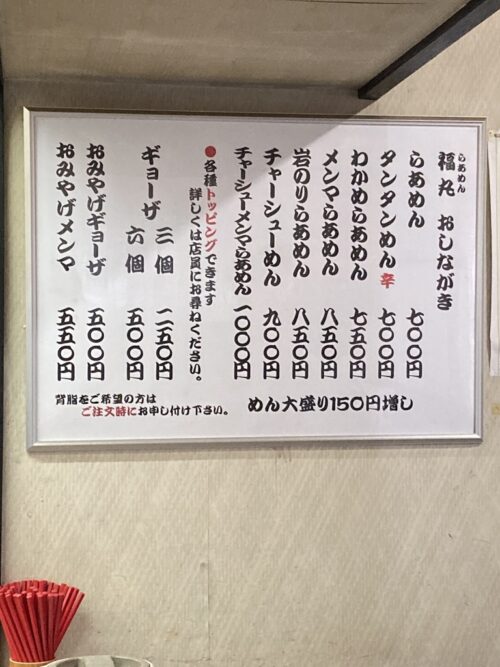 らあめん
福丸 おしながき
らあめん 七〇〇円
タンタンめん 辛 七〇〇円
わかめらあめん 七五〇円
メンマらあめん 八五〇円
岩のりらあめん 八五〇円
チャーシューめん 九〇〇円
チャーシューメンマらあめん 一〇〇〇円
●各種トッピングできます
詳しくは店員にお尋ねください。
ギョーザ 三個 二五〇円
六個 五〇〇円
おみやげギョーザ 五〇〇円
おみやげメンマ 五五〇円
めん大盛り150円増し
背脂をご希望の方は
ご注文時にお申し付け下さい。